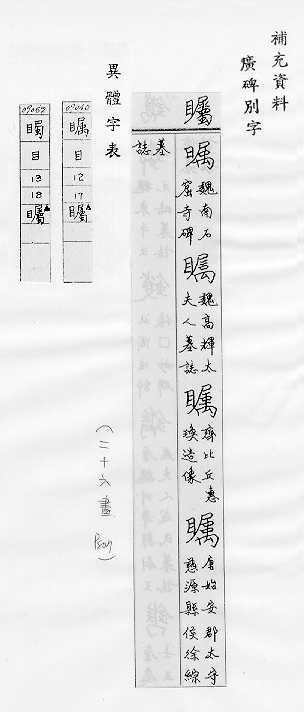 補充資料
廣碑別字
矚
矚 魏南石窟寺碑
矚 魏高輝太夫人墓誌
矚 齊比丘惠瑍造像
矚 唐始安郡太守慈源縣侯徐綜
墓誌
異體字表
目
12
17
矚
目
13
18
矚
(三十六畫